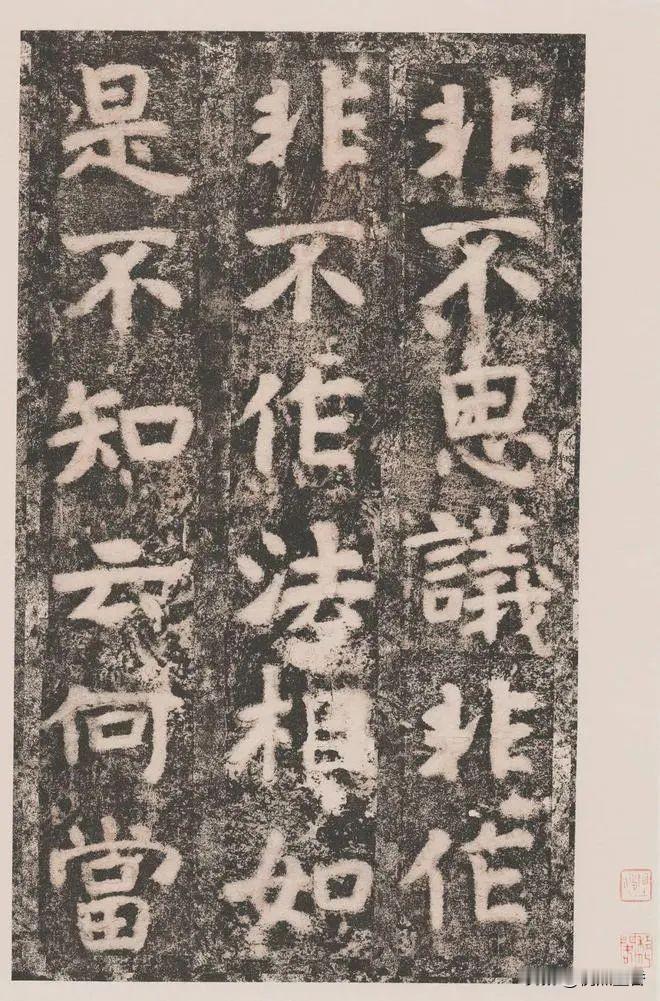 非不思議非作
非不作法相如
是不知云何當